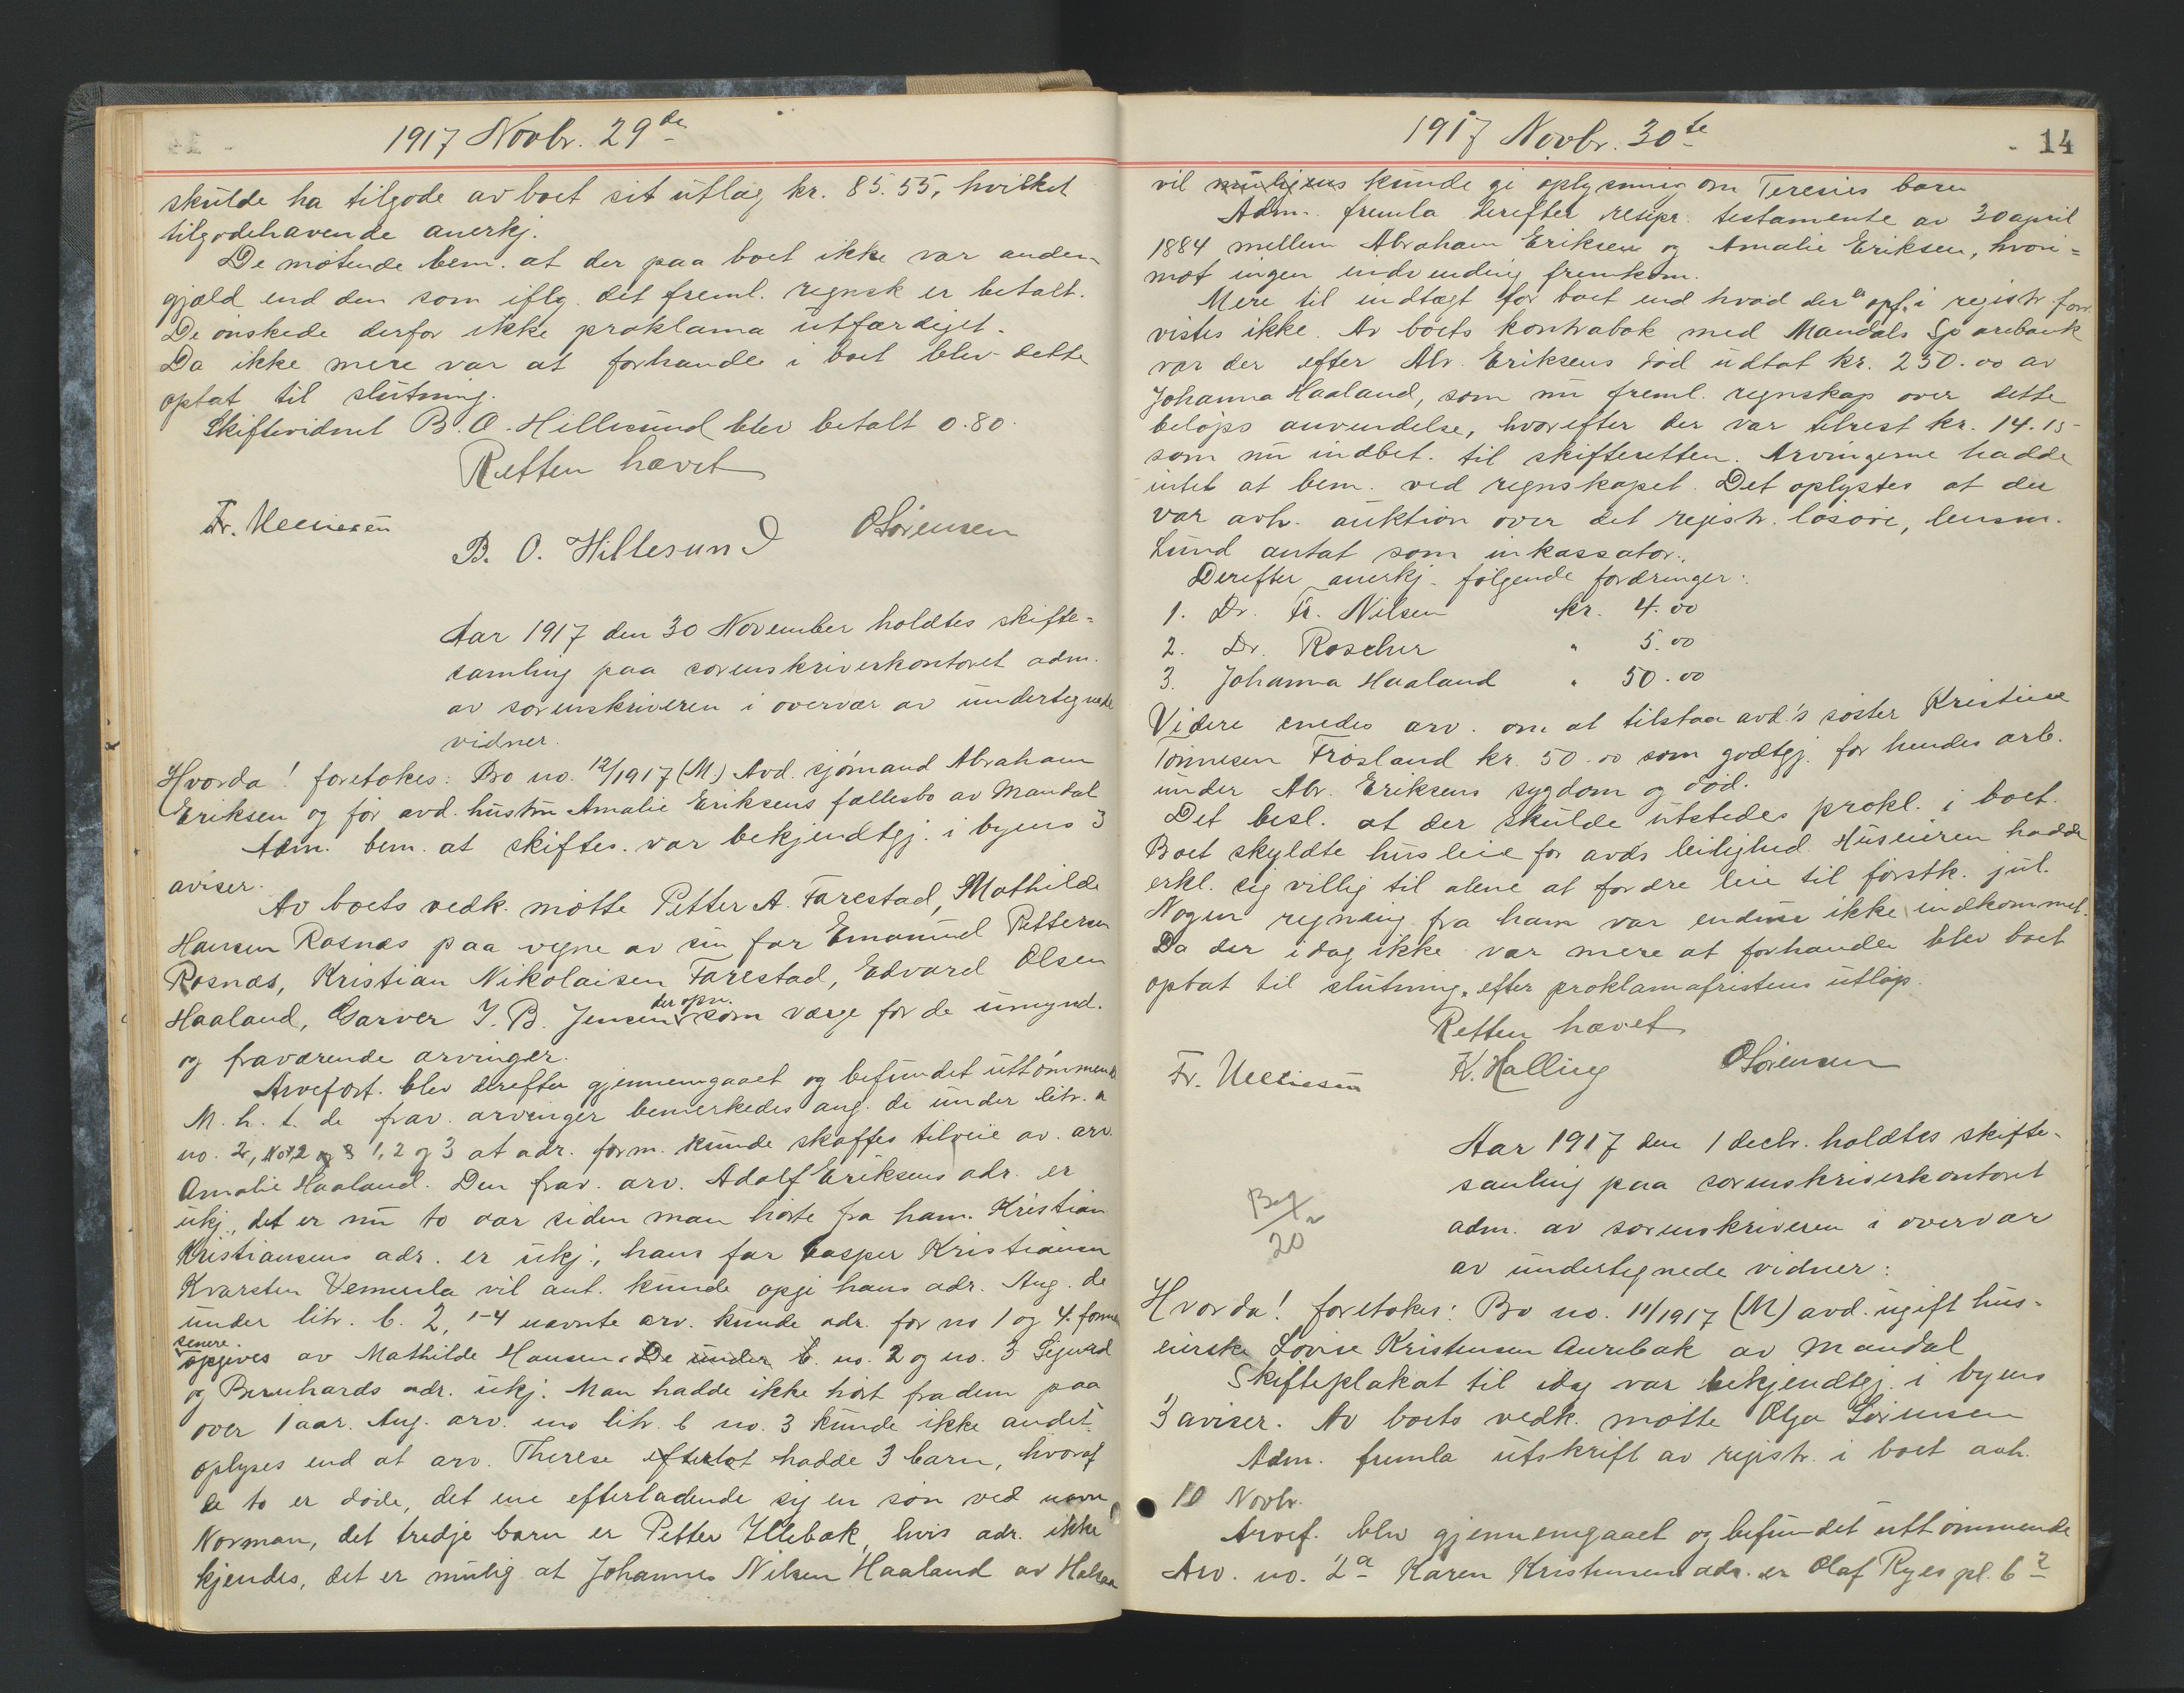 1917 Novbr. 29de
skulde ha tilgode av boet sit utlæg kr. 85.55, hvilket
tilgodehavende anerkj.
De møtende bem. at der paa boet ikke var anden
gjæld end den som iflg. det freml. regnsk er betalt.
De ønskede derfor ikke proklama utfærdiget.
Da ikke mere var at forhandle i boet blev dette
optat til slutning.
Skiftevidnet B. O. Hillesund blev betalt 0.80.
Retten hævet
B. O. Hillesund
OSørensen
Aar 1917 den 30 November holdtes skifte-
samling paa sorenskriverkontoret adm.
av sorenskriveren i overvær av undertegnede
vidner.
Hvorda! foretokes: Bo no. 12/1917 (M) Avd. sjømand Abraham
Eriksen og før avd. hustru Amalie Eriksens fællesbo av Mandal
Adm. bem. at skiftes. var bekjendtgj. i byens 3
aviser.
Av boets vedk. møtte Petter A. Farestad, Mathilde
Hansen Rosnæs paa vegne av sin far Emanuel Pettersen
Rosnæs, Kristian Nikolaisen Farestad, Edvard Olsen
Haaland, Garver J. B. Jensen der opn. som værge for de umynd.
og fraværende arvinger.
Arvefort. blev derefter gjennemgaaet og befundet uttømmende
M. h. t. de frav. arvinger bemerkedes ang. de under litr. a
no. 2, 1, 2 og 3 at adr. form. kunde skaffes tilveie av arv.
Amalie Haaland. Den frav. arv. Adolf Eriksens adr. er
ukj., det er nu to aar siden man hørte fra ham. Kristian
Kristiansens adr. er ukj., hans far Casper Kristiansen
Kvarsten Vennesla vil ant. kunde opgi hans adr. Ang. de
under litr. b. 2, 1-4 nævnte arv. kunde adr. for no 1 og 4. form
senere
opgives av Mathilde Hansen. De under b. no. 2 og no. 3 Sigurd
og Bernhards adr. ukj. Man hadde ikke hørt fra dem paa
over 1 aar. Ang. arv. litr. b no. 3 kunde ikke andet
oplyses end at arv. Therese efterlot hadde 3 barn, hvoraf
de to er døde, det ene efterladende sig en søn ved navn
Norman, det tredje barn er Petter Illebæk, hvis adr. ikke
kjendes, det er mulig at Johannes Nilsen Haaland av Halsaa
1917 Novbr. 30te
14
vil muligens kunde gi oplysning om Teresies barn
Adm. fremla derefter resipr. testamente av 30 april
1884 mellem Abraham Eriksen og Amalie Eriksen, hvori-
mot ingen indvending fremkom.
Mere til indtægt for boet end hvad der er opf. i registr. forr.
vistes ikke. Av boets kontrabok med Mandals Sparebank
var der efter Abr. Eriksens død udtat kr. 250.00 av
Johanna Haaland, som nu freml. regnskap over dette
beløps anvendelse, hvorefter der var tilrest kr. 14.15
som nu indbet. til skifteretten. Arvingerne hadde
intet at bem. ved regnskapet. Det oplystes at der
var avh. auktion over det registr. løsøre, lensm.
Lund antat som inkassator.
Derefter anerkj. følgende fordringer:
1. Dr. Fr. Nilsen kr. 4.00
2. Dr. Roscher " 5.00
3. Johanna Haaland " 50.00
Videre enedes arv. om at tilstaa avd.'s søster Kristine
Tønnesen Frøsland kr. 50.00 som godtgj. for hendes arb.
under Abr. Eriksens sygdom og død.
Det besl. at der skulde utstedes prokl. i boet.
Boet skyldte husleie for avd's leilighed. Huseieren hadde
erkl. sig villig til alene at fordre leie til førstk. jul.
Nogen regning fra ham var endnu ikke indkommet.
Da der idag ikke var mere at forhandle blev boet
optat til slutning efter proklamafristens utløp.
Retten hævet
K. Halling
OSørensen
Aar 1917 den 1 decbr. holdtes skifte-
samling paa sorenskriverkontoret
adm. av sorenskriveren i overvær
av undertegnede vidner:
20
Hvorda! foretokes: Bo no. 11/1917 (M) avd. ugift hus-
eierske Lovise Kristensen Aurebæk av Mandal
Skifteplakat til idag var bekjendtgj. i byens
3 aviser. Av boets vedk. møtte Olga Sørensen
Adm. fremla utskrift av registr. i boet avh.
10 Novbr.
Arvef. blev gjennemgaaet og befundet uttømmende
Arv. no. 2a Karen Kristensens adr. er Olaf Ryes pl. 6